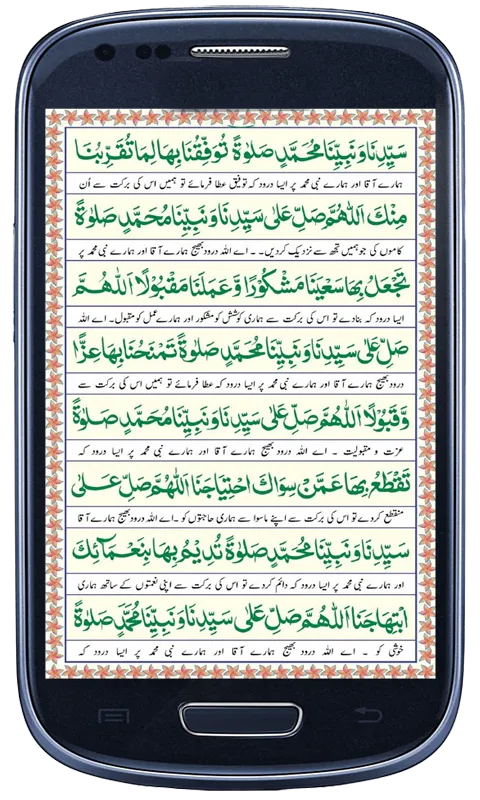 سَيِّدِنَا وَنَبِيِّنَا مُحَمَّدٍ صَلٰوةً تُوَفِّقُنَا بِهَا لِمَا تُقَرِّبُنَا
ہمارے آقا اور ہمارے نبی محمد پر ایسا درود کہ توفیق عطا فرمائے تو ہمیں اس کی برکت سے اُن
مِنْكَ اَللّٰهُمَّ صَلِّ عَلٰى سَيِّدِنَا وَنَبِيِّنَا مُحَمَّدٍ صَلٰوةً
کاموں کی جو ہمیں تجھ سے نزدیک کر دیں۔ اے اللہ درود بھیج ہمارے آقا اور ہمارے نبی محمد پر
تَجْعَلُ بِهَا سَعْيَنَا مَشْكُورًا وَّعَمَلَنَا مَقْبُولًا اَللّٰهُمَّ
ایسا درود کہ بنادے تو اس کی برکت سے ہماری کوشش کو مشکور اور ہمارے عمل کو مقبول۔ اے اللہ
صَلِّ عَلٰى سَيِّدِنَا وَنَبِيِّنَا مُحَمَّدٍ صَلٰوةً تَمْنَحُنَا بِهَا عِزًّا
درود بھیج ہمارے آقا اور ہمارے نبی محمد پر ایسا درود کہ عطا فرمائے تو ہمیں اس کی برکت سے
وَّقَبُولًا اَللّٰهُمَّ صَلِّ عَلٰى سَيِّدِنَا وَنَبِيِّنَا مُحَمَّدٍ صَلٰوةً
عزت و مقبولیت ۔ اے اللہ درود بھیج ہمارے آقا اور ہمارے نبی محمد پر ایسا درود کہ
تَقْطَعُ بِهَا عَمَّنْ سِوَاكَ احْتِيَاجَنَا اَللّٰهُمَّ صَلِّ عَلٰى
منقطع کردے تو اس کی برکت سے اپنے ماسوا سے ہماری حاجتوں کو ۔اے اللہ درود بھیج ہمارے آقا
سَيِّدِنَا وَنَبِيِّنَا مُحَمَّدٍ صَلٰوةً تُدِيْمُ بِهَا بِنَعْمَآئِكَ
اور ہمارے نبی محمد پر ایسا درود کہ دائم کردے تو اس کی برکت سے اپنی نعمتوں کے ساتھ ہماری
ابْتِهَاجَنَا اَللّٰهُمَّ صَلِّ عَلٰى سَيِّدِنَا وَنَبِيِّنَا مُحَمَّدٍ صَلٰوةً
خوشی کو ۔ اے اللہ درود بھیج ہمارے آقا اور ہمارے نبی محمد پر ایسا درود کہ